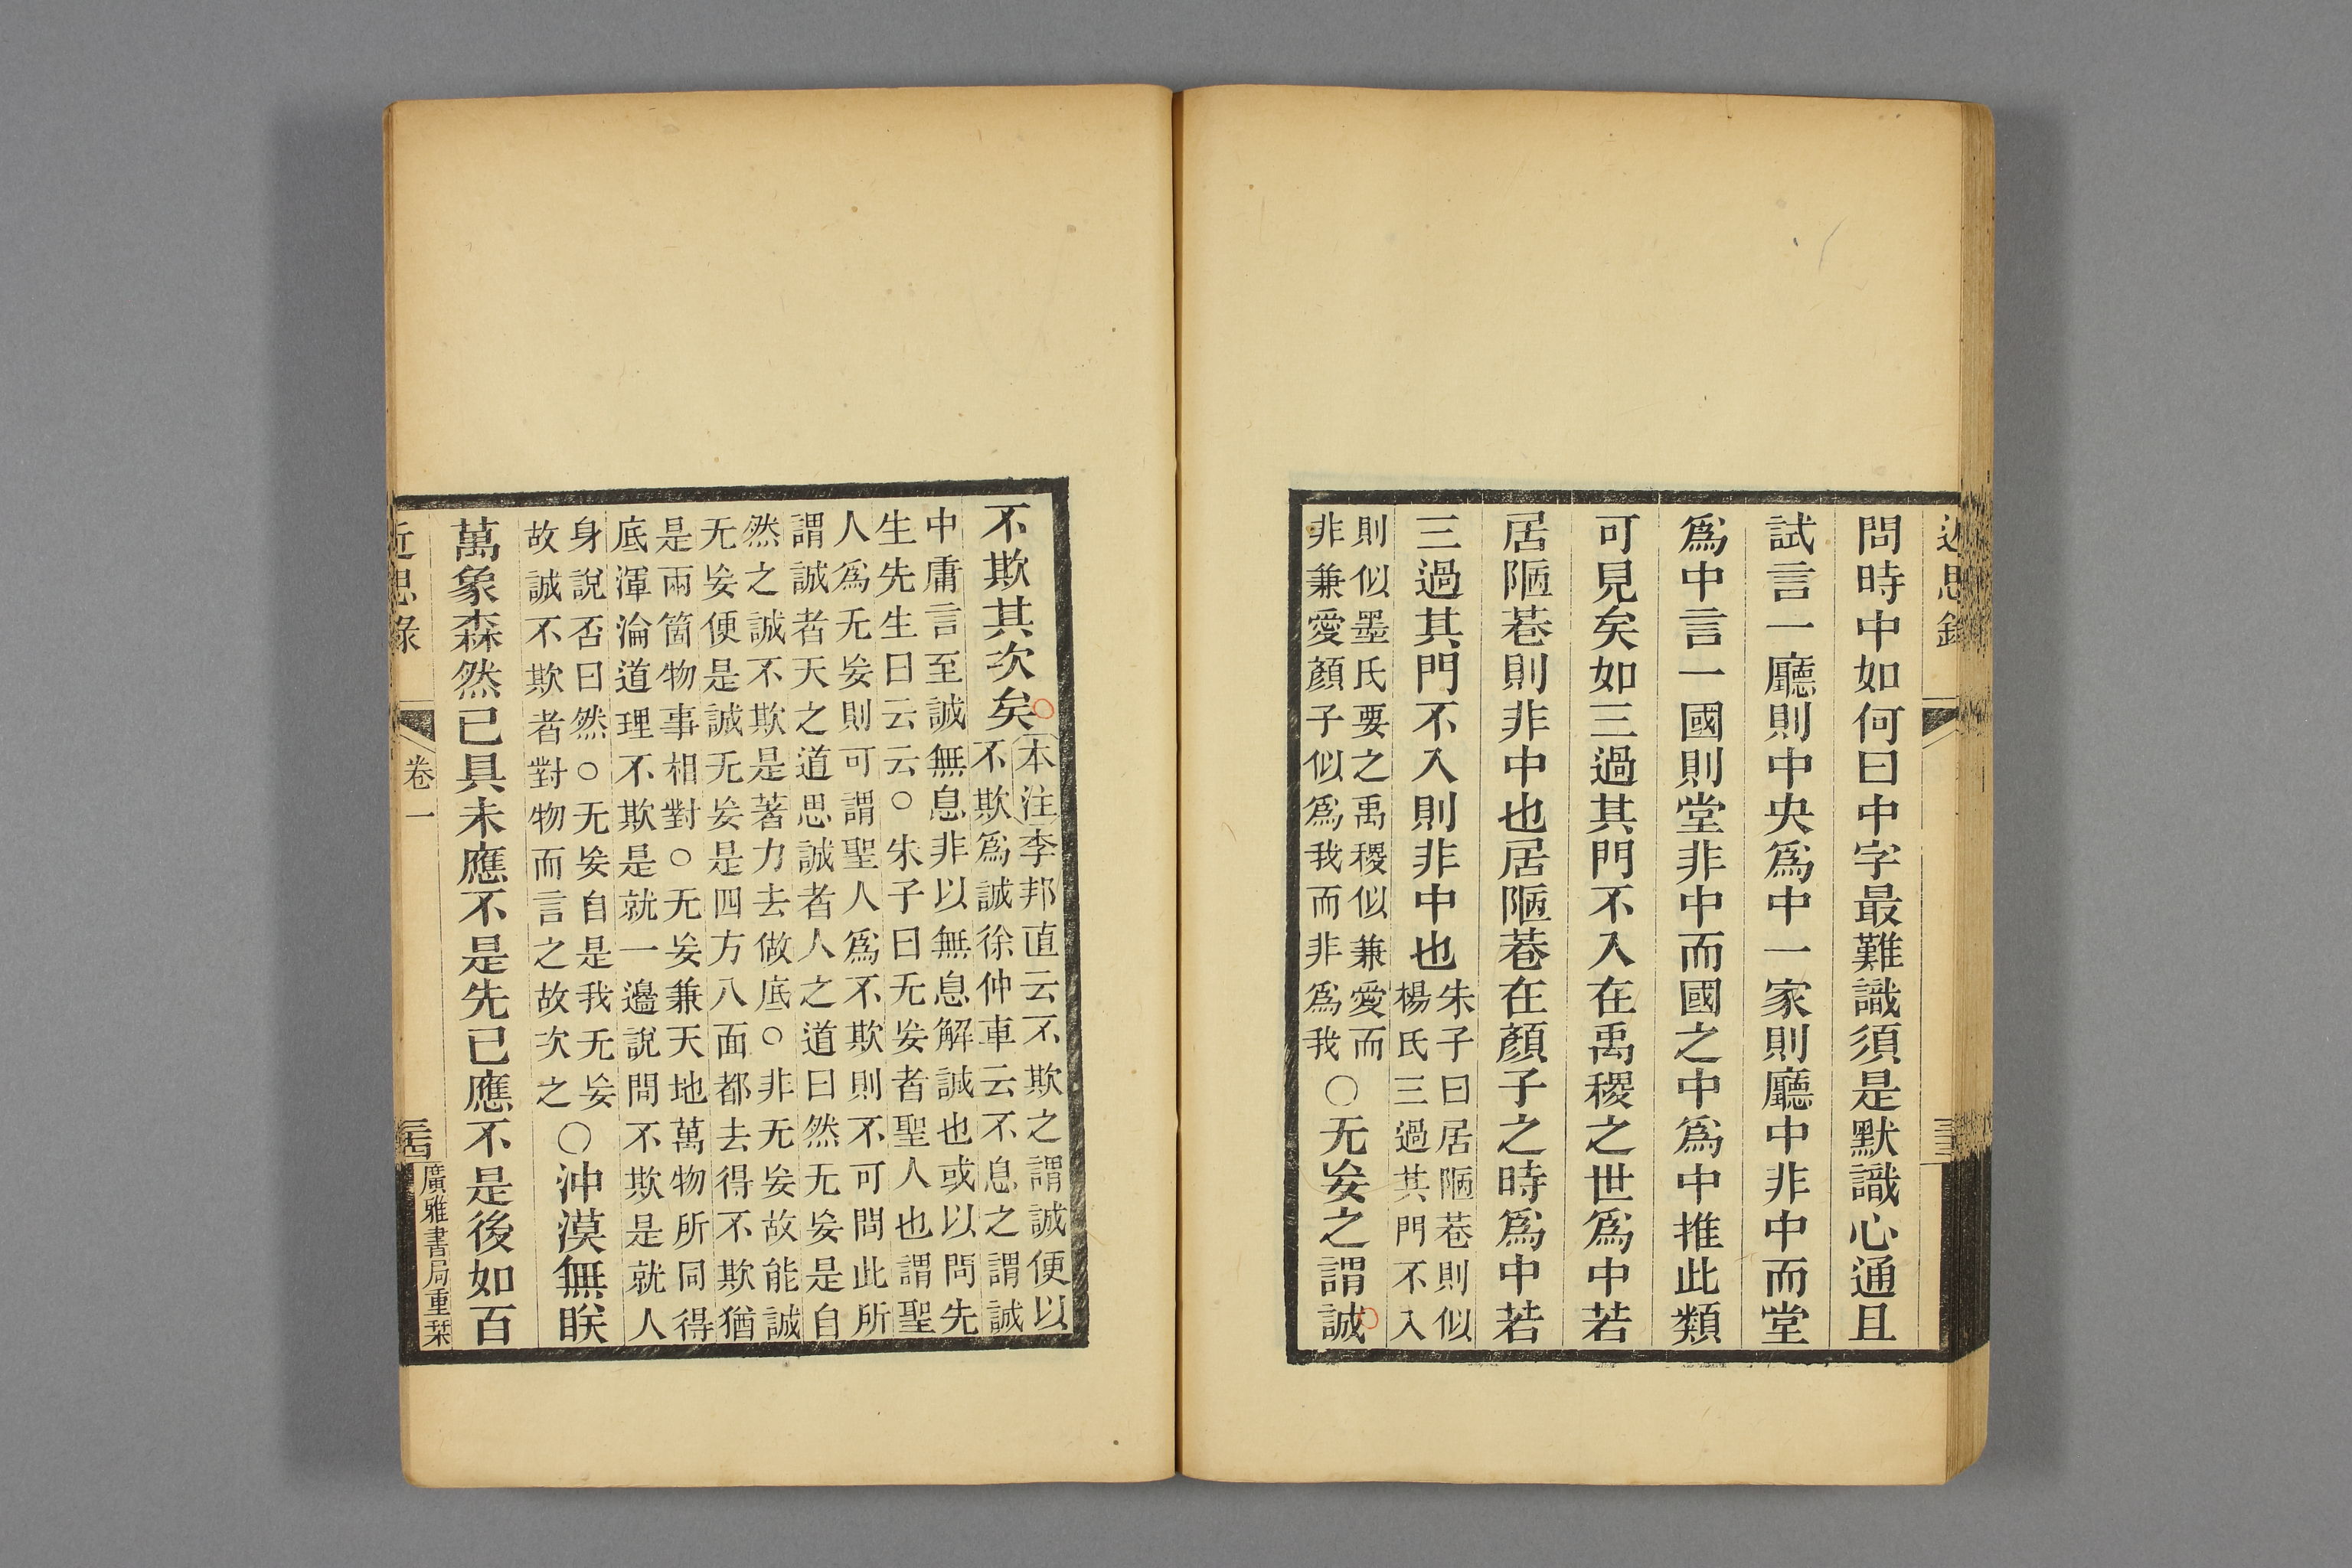 近思錄
問時中如何曰中字最難識須是默識心通且
試言一廳則中央爲中一家則廳中非中而堂
爲中言一國則堂非中而國之中爲中推此類
可見矣如三過其門不入在禹稷之世爲中若
居陋巷則非中也居陋巷在顏子之時爲中若
三過其門不入則非中也
朱子曰居陋巷則似
楊氏三過其門不入
則似墨氏要之禹稷似兼愛而
非兼愛顏子似爲我而非爲我
○无妄之謂誠
不欺其次矣
本注李邦直云不欺之謂誠便以
不欺爲誠徐仲車云不息之謂誠
中庸言至誠無息非以無息解誠也或以問先
生先生曰云云○朱子曰无妄者聖人也謂聖
人爲无妄則可謂聖人爲不欺則不可問此所
謂誠者天之道思誠者人之道曰然无妄是自
然之誠不欺是著力去做底○非无妄故能誠
无妄便是誠无妄是四方八面都去得不欺猶
是兩箇物事相對○无妄兼天地萬物所同得
底渾淪道理不欺是就一邊說問不欺是就人
身說否曰然○无妄自是我无妄
故誠不欺者對物而言之故次之
○沖漠無眹
萬象森然已具未應不是先已應不是後如百
近思錄
卷一
廣雅書局重栞